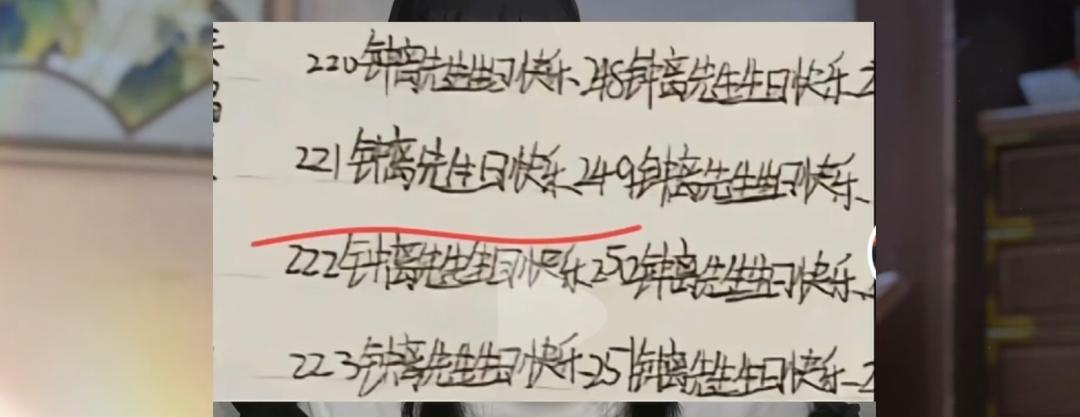 220钟离先生生日快乐、248钟离先生生日快乐、2
221钟离先生日快乐、249钟离先生生日快乐、
222钟离先生生日快乐、250钟离先生生日快乐、
223钟离先生生日快乐、251钟离先生生日快乐、2